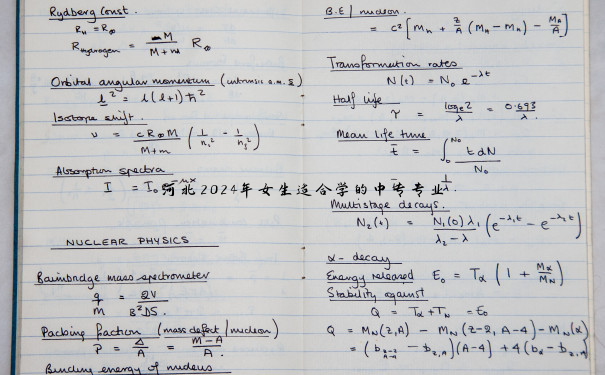 Rydberg Const.
R_H = R_∞
R_Hydrogen = M / (M + m) R_∞
Orbital angular momentum (intrinsic a.m. s)
l² = l(l+1)ħ²
Isotope shift.
ν = cR_∞M / (M+m) (1/n₁² - 1/n₂²)
Absorption spectra
I = I₀e^-μx
河北2024年女生适合学的中专专业
NUCLEAR PHYSICS
Bainbridge mass spectrometer
q/m = 2V / B²DS.
Packing fraction (mass defect / nucleon)
P = Δ/A = (M-A)/A.
Binding energy of nucleus
B.E / nucleon.
= c² [M_n + Z/A (M_H - M_n) - M_A/A]
Transformation rates
N(t) = N₀ e^-λt
Half life
τ = log_e 2 / λ = 0.693 / λ.
Mean life time
t̄ = ∫₀^N₀ t dN / N₀
= 1/λ.
Multistage decays.
N₂(t) = N₁(0) λ₁ / (λ₂ - λ) (e^-λ₁t - e^-λ₂t)
α - decay
Energy released E₀ = T_α (1 + M_α/M_N)
Stability against
Q = T_α + T_N = E₀
Q = M_N(Z,A) - M_N(Z-2, A-4) - M_N(α)
= (b_Z-2,A-4 - b_Z,A)(A-4) + 4(b_α - b_Z,A)